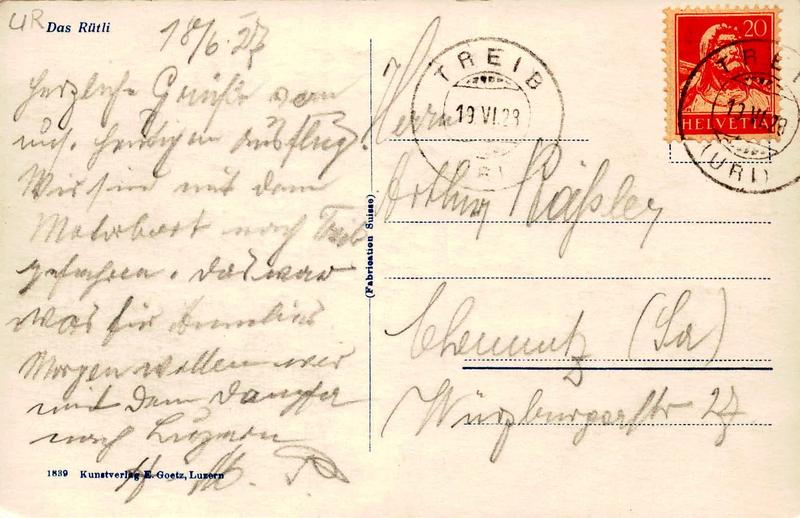 UR
Das Rütli
18/6. 27
Herzliche Grüße vom
heutigen Ausflug.
Wir sind mit dem
Motorboot nach Treib
gefahren. Das war
was für
Morgen wollen wir
mit dem Dampfer
nach Luzern
1839 Kunstverlag E. Goetz, Luzern
(Fabrication Suisse)
TREIB
19.VI.28
20
HELVETIA
TREIB
19.VI.28
(URI)
Herrn
Arthur Räßler
Chemnitz (Sa)
Würzburgerstr 27